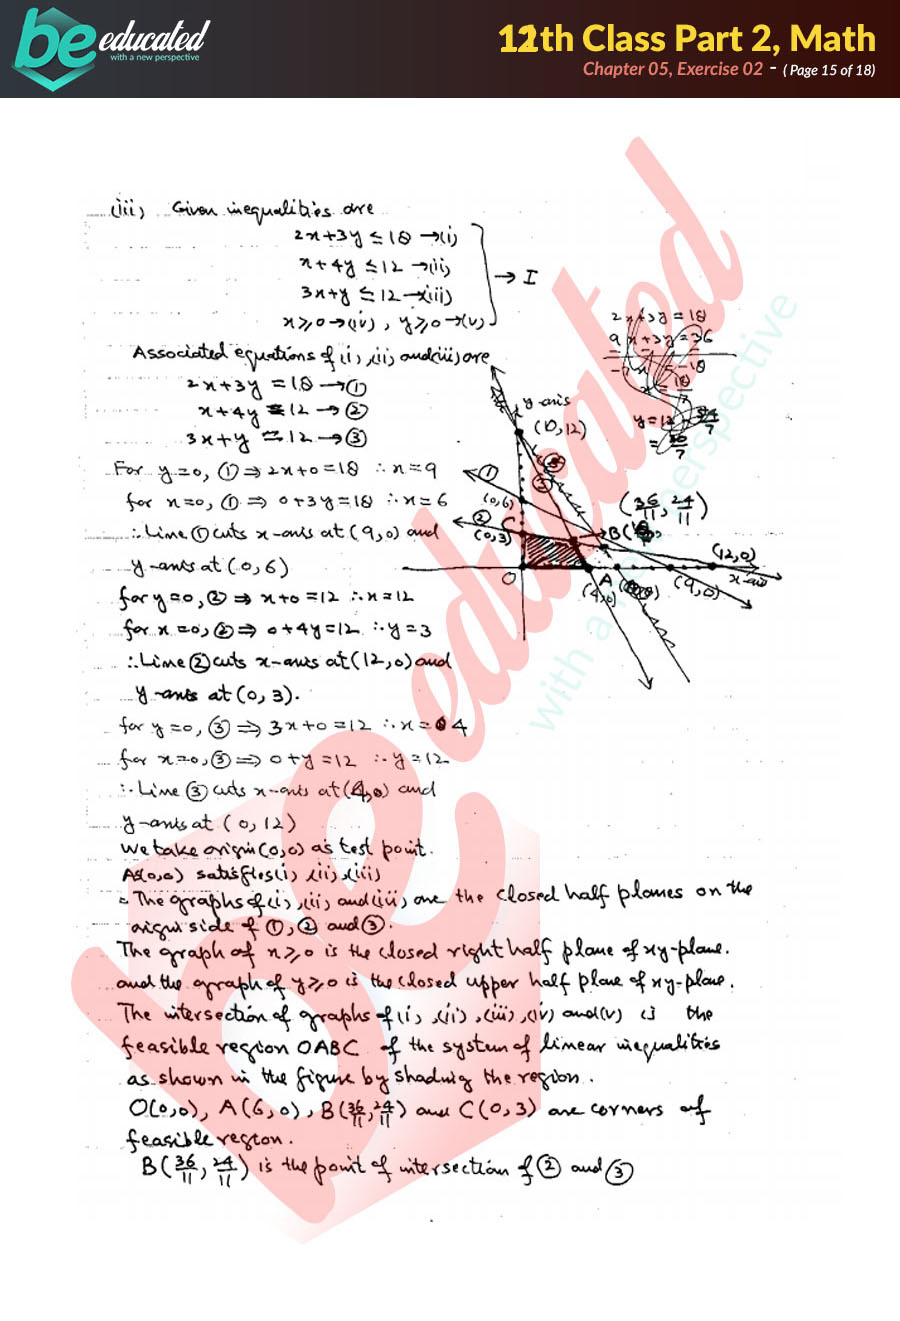 be educated
with a new perspective
12th Class Part 2, Math
Chapter 05, Exercise 02 - ( Page 15 of 18)
(iii) Given inequalities are
2x+3y ≤ 18 →(i)
x+4y ≤ 12 →(ii)
3x+y ≤ 12 →(iii)
x≥0→(iv), y≥0→(v)
→ I
2x+3y = 18
9x+3y = 36
-7x = -18
x = 18/7
Associated equations of (i), (ii) and (iii) are
2x+3y = 18 → ①
x+4y = 12 → ②
3x+y = 12 → ③
y-axis
(0,12)
①
(0,6)
②
C
(0,3)
③
(36/11, 24/11)
B
(12,0)
x-axis
O
A
(4,0)
(9,0)
For y=0, ① ⇒ 2x+0=18 ∴ x=9
for x=0, ① ⇒ 0+3y=18 ∴ x=6
∴ Line ① cuts x-axis at (9,0) and
y-axis at (0,6)
for y=0, ② ⇒ x+0=12 ∴ x=12
for x=0, ② ⇒ 0+4y=12 ∴ y=3
∴ Line ② cuts x-axis at (12,0) and
y-axis at (0,3).
for y=0, ③ ⇒ 3x+0=12 ∴ x=4
for x=0, ③ ⇒ 0+y=12 ∴ y=12
∴ Line ③ cuts x-axis at (4,0) and
y-axis at (0,12)
We take origin (0,0) as test point.
As (0,0) satisfies (i), (ii), (iii)
∴ The graphs of (i), (ii) and (iii) are the closed half planes on the
origin side of ①, ② and ③.
The graph of x≥0 is the closed right half plane of xy-plane.
and the graph of y≥0 is the closed upper half plane of xy-plane.
The intersection of graphs of (i), (ii), (iii), (iv) and (v) is the
feasible region OABC of the system of linear inequalities
as shown in the figure by shading the region.
O(0,0), A(6,0), B(36/11, 24/11) and C(0,3) are corners of
feasible region.
B(36/11, 24/11) is the point of intersection of ② and ③
be educated
with a new perspective